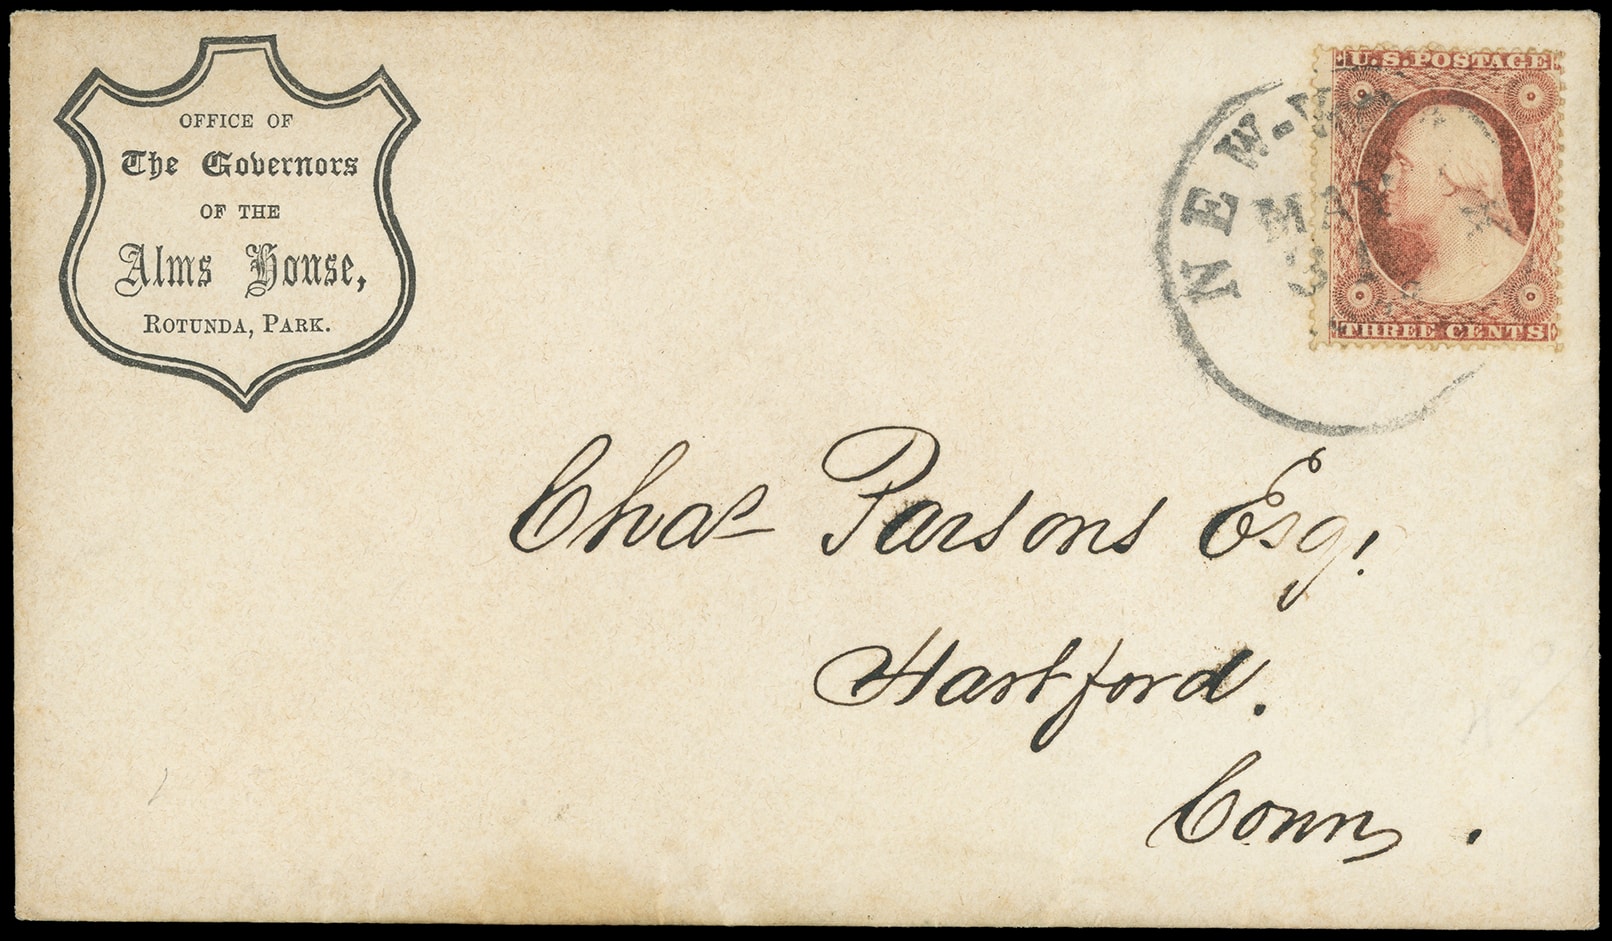 OFFICE OF
The Governors
OF THE
Alms House,
ROTUNDA, PARK.
U.S. POSTAGE
THREE CENTS
NEW-Y
MAY
31
Chas Parsons Esq.
Hartford.
Conn.